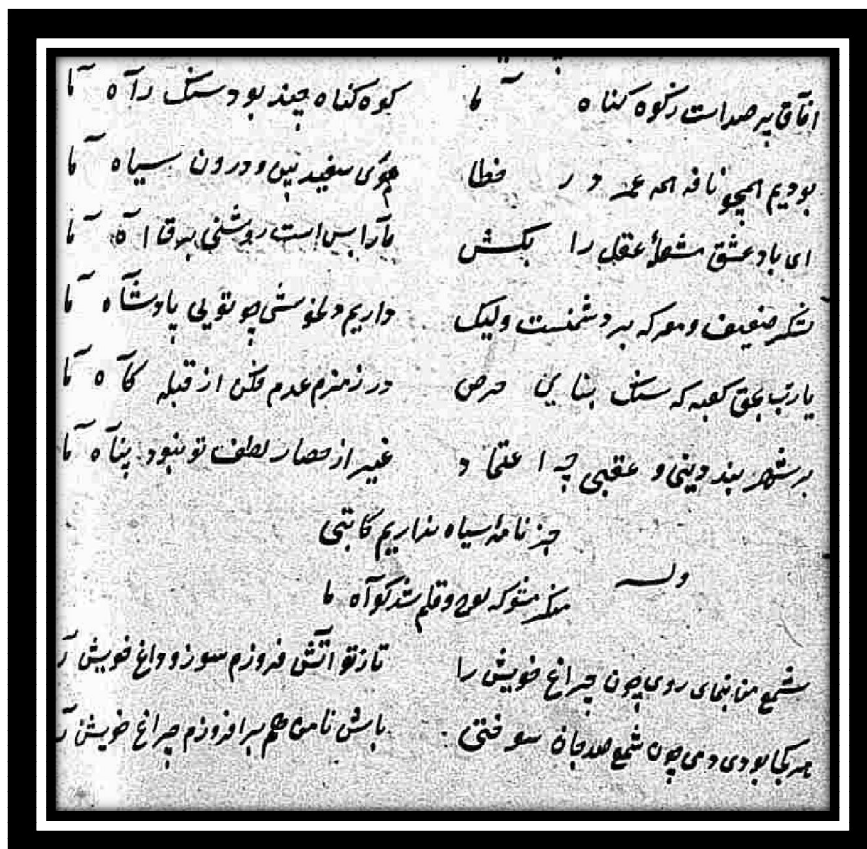 آفاق پر صداست ز کوه گناه ما کوه گناه چند بود سنگ راه ما
بودیم همچو نافه همه عمر در خطا موی سفید بین و درون سیاه ما
ای باد عشق مشعلهٔ عقل را بکش ما را بس است روشنی برق آه ما
لشکر ضعیف و معرکه پر دشمنست ولیک داریم دل خوشی چو تویی پادشاه ما
یارب بحق کعبه که سنگ بنای حرص در زمزم عدم فکن از قبله گاه ما
بر شهر بند دینی و عقبی چه اعتماد غیر از حصار لطف تو نبود پناه ما
جز نامه سیاه نداریم کاتبی
وله
منکر مشو که لوح و قلم شد گواه ما
شمع من بنمای روی چون چراغ خویش را تا ز تو آتش فروزم سوز و داغ خویش را
هر کجا بودی دمی چون شمع صد جان سوختی باش تا من هم برافروزم چراغ خویش را